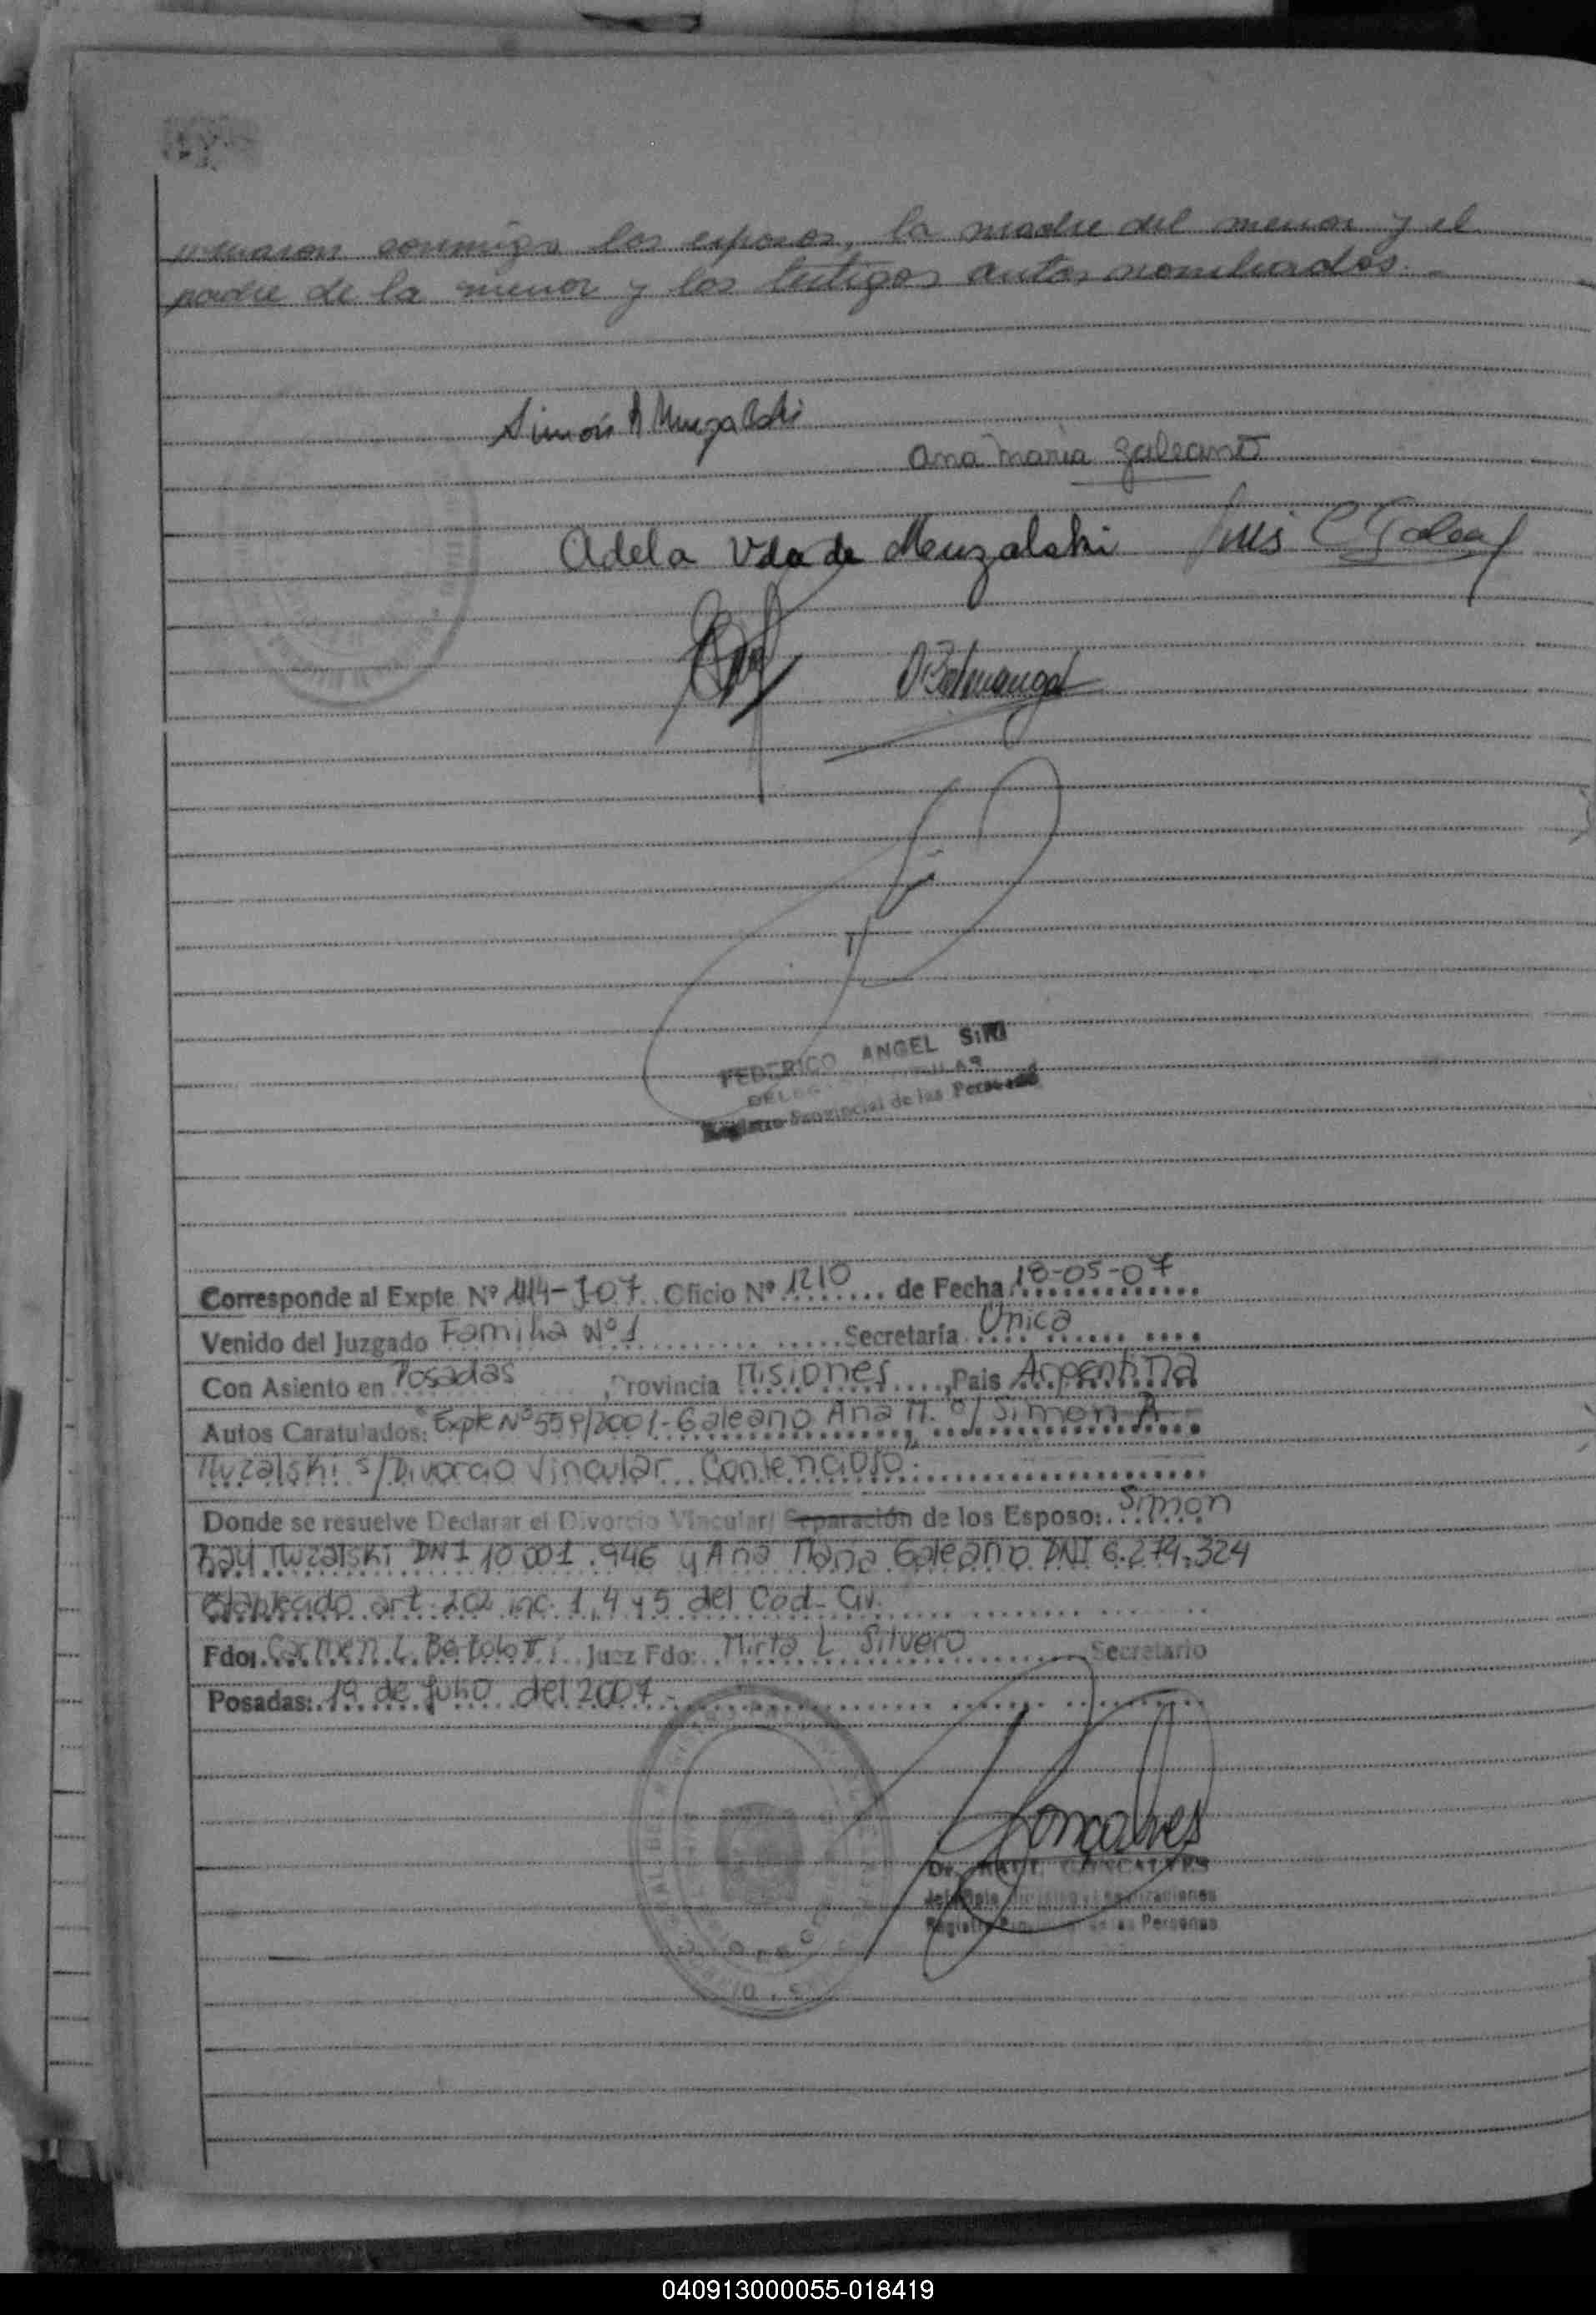 conmigo los esposos, la madre del menor y el
padre de la menor y los testigos antes nombrados.-
Simón R Muzalski
Ana María Galeano
Adela Vda de Muzalski Luis C Galeano
FEDERICO ANGEL SIRI
DELEGADO TITULAR
Registro Provincial de las Personas
Corresponde al Expte Nº 1114-J-07. Oficio Nº 1210 de Fecha 18-05-07
Venido del Juzgado Familia Nº 1 Secretaría Unica
Con Asiento en Posadas, Provincia Misiones, Pais Argentina
Autos Caratulados: "Expte Nº 559/2001-Galeano Ana M. c/ Simon R
Muzalski s/Divorcio Vincular Contencioso".
Donde se resuelve Declarar el Divorcio Vincular/ Separación de los Esposo: Simon
Raul Muzalski DNI 10.001.946 y Ana Maria Galeano DNI 6.274.324
establecido art. 202 inc. 1, 4 y 5 del Cod- Civ.
Fdo: Carmen L. Bertolotti Juez Fdo: Mirta L Silvero Secretario
Posadas: 19 de Julio del 2007.-
Goncalves
Dr. RAUL GONCALVES
Registro Provincial de las Personas
040913000055-018419